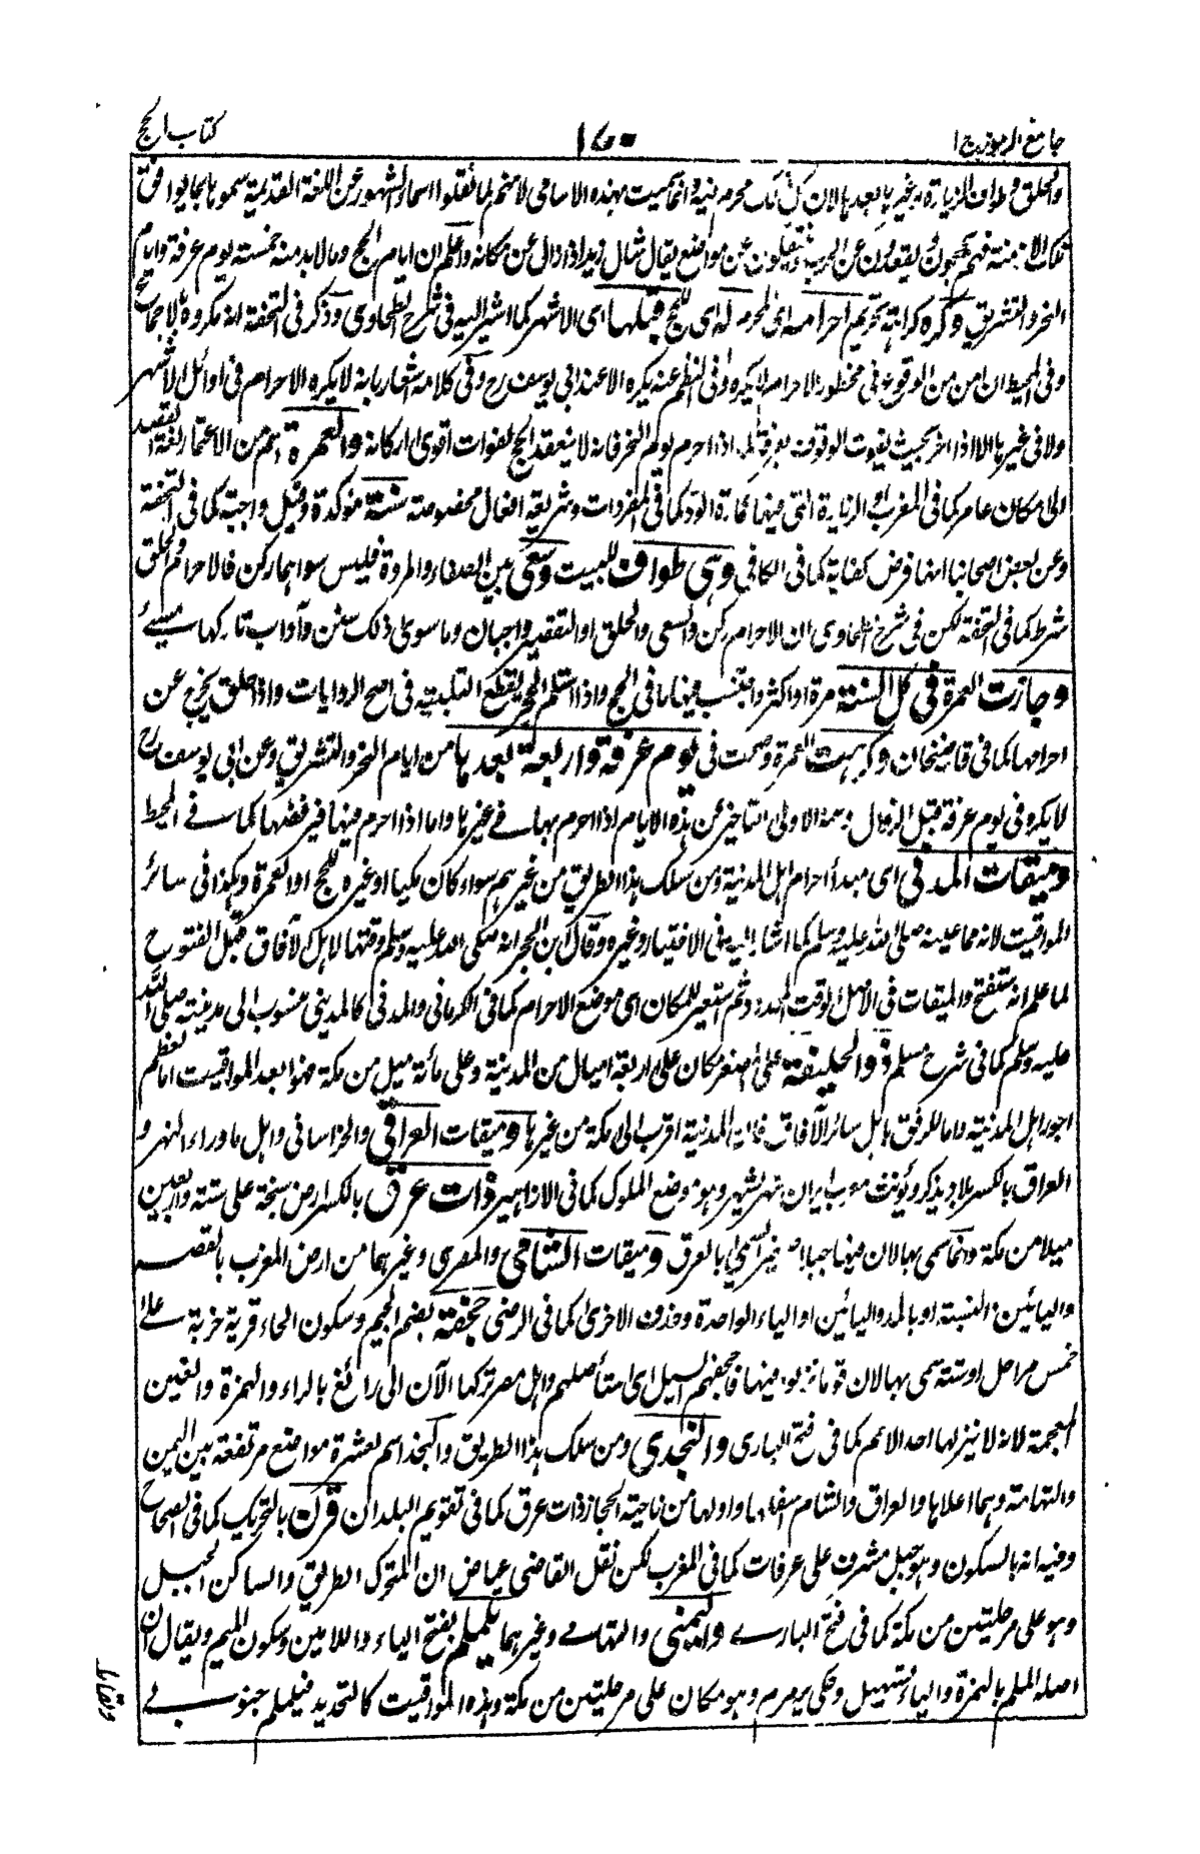 جامع الرموز ج ا
١٧٠
كتاب الحج
والحلق وطواف الزيارة وغيرها بعدها لان كل ذلك محرم فيه وانما سميت بهذه الاسامى لانهم لما نقلوا اسماء الشهور عن اللغة القديمة سموها بما يوافق
من مكانه واعلم ان ايام الحج وما لابد منه خمسة يوم عرفة وايام
النحر والتشريق وكره كراهة تحريم احرامه اى المحرم له اى للحج قبلها اى الاشهر كما اشير اليه فى شرح الطحاوى وذكر فى التحفة انه مكروه بالاجماع
وفى المحيط ان امن من الوقوع فى محظور الاحرام لا يكره وفى النظم عنه يكره الا عند ابى يوسف رح وفى كلامه اشعار بانه لا يكره الاحرام فى اوائل الاشهر
ولا فى غيرها الا اذا اخر بحيث يفوت الوقوف بعرفة اذا احرم يوم النحر فانه لا ينعقد الحج لفوات اقوى اركانه والعمرة اسم من الاعتمار لغة القصد
الى مكان عامر كما فى المغرب او الزيارة التى فيها عمارة الود كما فى المفردات وشريعة افعال مخصوصة سنة مؤكدة وقيل واجبة كما فى التحفة
وعن بعض اصحابنا انها فرض كفاية كما فى الكافى وهى طواف للبيت وسعى بين الصفا والمروة فليس سواهما ركن فالاحرام والحلق
شرط كما فى التحفة لكن فى شرح الطحاوى ان الاحرام ركن والسعى والحلق او التقصير واجبان وما سوى ذلك سنن وآداب تاركها مسئ
وجازت العمرة فى كل السنة مرة او اكثر واجتنب فيها ما فى الحج واذا استلم الحجر يقطع التلبية فى اصح الروايات واذا حلق يخرج عن
احرامها كما فى قاضيخان وكرهت العمرة وصحت فى يوم عرفة واربعة بعدها من ايام النحر والتشريق وعن ابى يوسف رح
لا يكره فى يوم عرفة قبل الزوال والاولى التاخير عن هذه الايام اذا احرم بها فى غيرها واما اذا احرم فيها فيرفضها كما فى المحيط
وميقات المدنى اى مبدأ احرام اهل المدينة ومن سلك هذا الطريق من غيرهم سواء كان مكيا او غيره للحج او العمرة وهكذا فى سائر
المواقيت لانه مما عينه صلى الله عليه وسلم كما اشار اليه فى الاختيار وغيره وقال ابن الحجر انه صلى الله عليه وسلم وقتها لاهل الآفاق قبل الفتوح
لما علم انه ستفتح والميقات فى الاصل الوقت المحدود ثم استعير للمكان اى موضع الاحرام كما فى الكرمانى والمدنى كالمدينى منسوب الى مدينة صلى الله
عليه وسلم كما فى شرح مسلم ذو الحليفة على المصغر مكان على اربعة اميال من المدينة وعلى مائة ميل من مكة فهو ابعد المواقيت اما لعظم
اجور اهل المدينة واما للرفق باهل سائر الآفاق فان المدينة اقرب الى مكة من غيرها وميقات العراقى والخراسانى واهل ما وراء النهر و
العراق بالكسر بلاد يذكر ويؤنث معرب ايران شهر وهو موضع الملوك كما فى الازاهير ذات عرق بالكسر ارض سبخة على ستة واربعين
ميلا من مكة وانما سمى بها لان فيها جبلا صغيرا يسمى بالعرق وميقات الشامى والمصرى وغيرهما من ارض المغرب بالقصر
واليائين النسبة او بالمد واليائين او الياء الواحدة وحذف الاخرى كما فى الرضى جحفة بضم الجيم وسكون الحاء قرية خربة على
خمس مراحل او ستة سمى بها لان قوما نزلوا فيها فاجحفهم السيل اى استأصلهم واهل مصر تركها الآن الى رائغ بالراء والهمزة والغين
المعجمة لانه لا ينزلها احد الا حم كما فى فتح البارى والنجدى ومن سلك هذا الطريق والنجد اسم لعشرة مواضع مرتفعة بين اليمن
والتهامة وهما اعلاها والعراق والشام اسفلها واولها من ناحية الحجاز ذات عرق كما فى تقويم البلدان قرن بالتحريك كما فى الصحاح
وفيه انه بالسكون وهو جبل مشرف على عرفات كما فى المغرب لكن نقل القاضى عياض ان المتحرك الطريق والساكن الجبل
وهو على مرحلتين من مكة كما فى فتح البارى واليمنى والتهامى وغيرهما يلملم بفتح الياء واللامين وسكون الميم ويقال ان
اصله الملم بالهمزة والياء تسهيل وحكى يرمرم وهو مكان على مرحلتين من مكة وهذه المواقيت كالتحديد فيلملم جنوبى